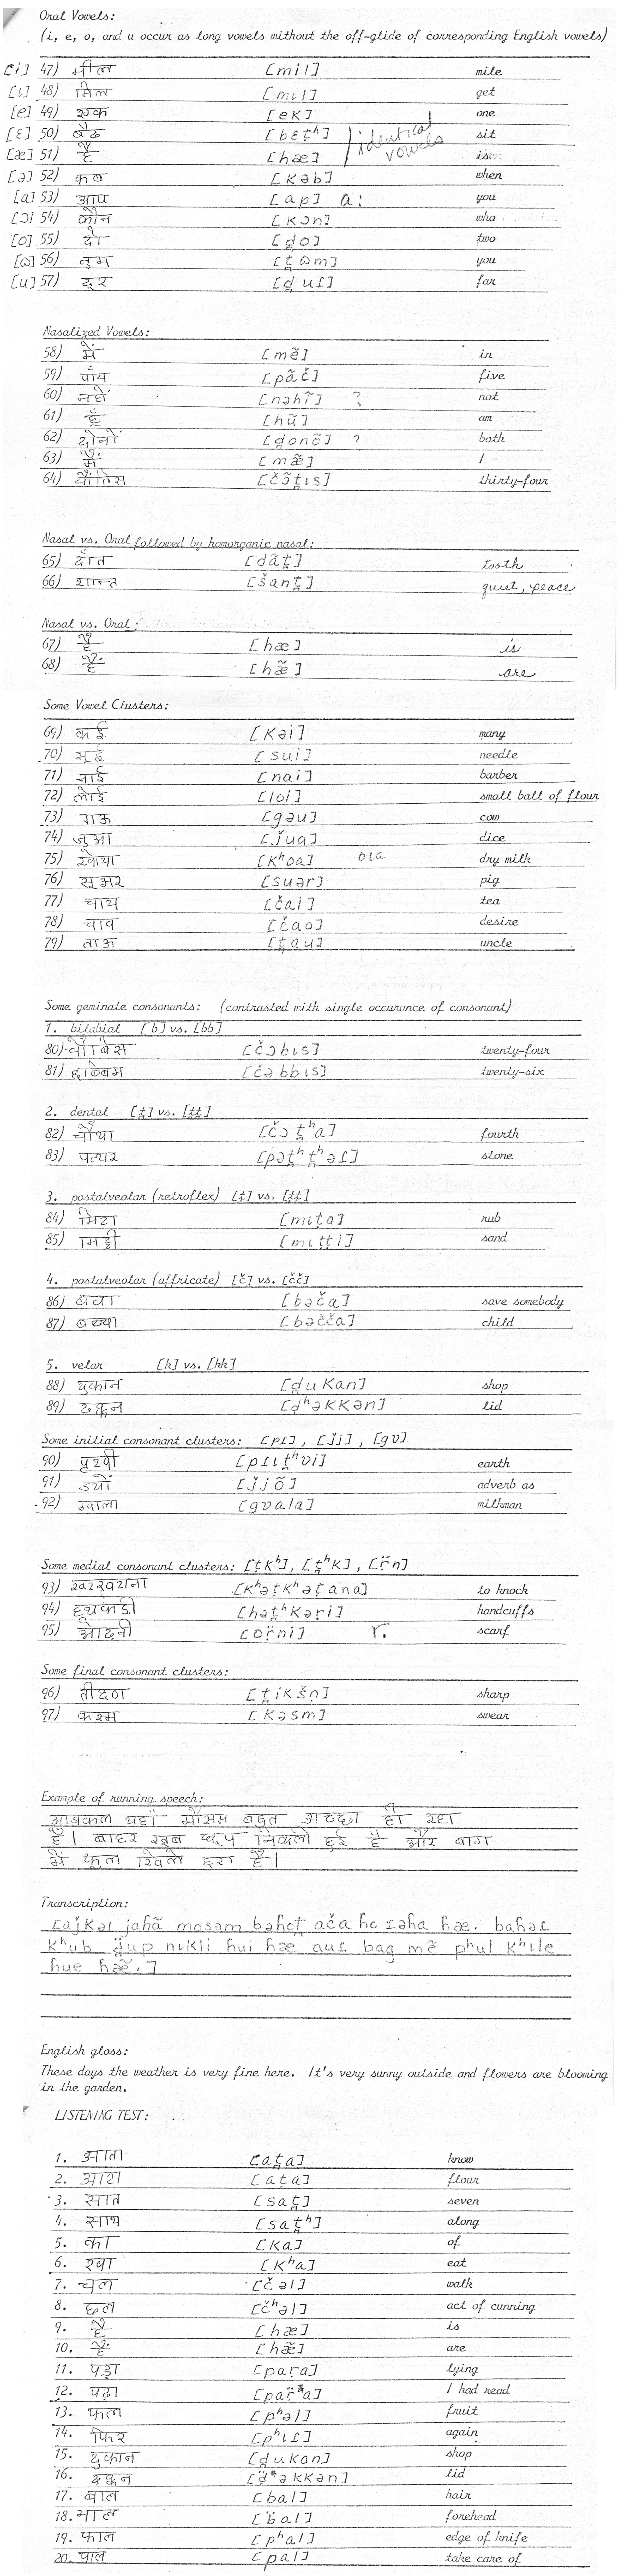 Oral Vowels:
(i, e, o, and u occur as long vowels without the off-glide of corresponding English vowels)
[i] 47) मील [mil] mile
[ɩ] 48) मिल [mɩl] get
[e] 49) एक [ek] one
[ɛ] 50) बैठ [bɛṭʰ] sit identical
[æ] 51) है [hæ] is vowels
[ə] 52) कब [kəb] when
[a] 53) आप [ap] a: you
[ɔ] 54) कौन [kɔn] who
[o] 55) दो [d̪o] two
[ɷ] 56) तुम [t̪ɷm] you
[u] 57) दूर [d̪uɾ] far
Nasalized Vowels:
58) में [mẽ] in
59) पाँच [pãč] five
60) नहीं [nəhĩ] ? not
61) हूँ [hũ] am
62) दोनों [d̪onõ] ? both
63) मैं [mæ̃] I
64) चौंतिस [čɔ̃t̪ɩs] thirty-four
Nasal vs. Oral followed by homorganic nasal:
65) दाँत [dãt̪] tooth
66) शान्त [šant̪] quiet, peace
Nasal vs. Oral:
67) है [hæ] is
68) हैं [hæ̃] are
Some Vowel Clusters:
69) कई [kəi] many
70) सूई [sui] needle
71) नाई [nai] barber
72) लोई [loi] small ball of flour
73) गऊ [gəu] cow
74) जुआ [ǰua] dice
75) खोया [kʰoa] oia dry milk
76) सूअर [suər] pig
77) चाय [čai] tea
78) चाव [čao] desire
79) ताऊ [t̪au] uncle
Some geminate consonants: (contrasted with single occurance of consonant)
1. bilabial [b] vs. [bb]
80) चौबिस [čɔbɩs] twenty-four
81) [čəbbɩs] twenty-six
2. dental [t̪] vs. [t̪t̪]
82) चौथा [čɔt̪ʰa] fourth
83) पत्थर [pət̪ʰt̪ʰəɾ] stone
3. postalveolar (retroflex) [ṭ] vs. [ṭṭ]
84) मिटा [mɩṭa] rub
85) मिट्टी [mɩṭṭi] sand
4. postalveolar (affricate) [č] vs. [čč]
86) बचा [bəča] save somebody
87) बच्चा [bəčča] child
5. velar [k] vs. [kk]
88) दुकान [d̪ukan] shop
89) ढक्कन [ḍʰəkkən] lid
Some initial consonant clusters: [pɾ], [ǰj], [gʋ]
90) पृथ्वी [pɾɩt̪ʰʋi] earth
91) ज्यों [ǰjõ] adverb as
92) ग्वाला [gʋala] milkman
Some medial consonant clusters: [ṭkʰ], [t̪ʰk], [r̤̣n]
93) खटखटाना [kʰəṭkʰəṭana] to knock
94) हथकडी [hət̪ʰkəṛi] handcuffs
95) ओढ़नी [or̤̣ni] r. scarf
Some final consonant clusters:
96) तीक्ष्ण [t̪ikšṇ] sharp
97) कस्म [kəsm] swear
Example of running speech:
आजकल यहाँ मौसम बहुत अच्छा हो रहा
है। बाहर खूब धूप निकली हुई है और बाग
में फूल खिले हुए हैं।
Transcription:
[aǰkəl jahã mosəm bəhot̪ ača ho ɾəha hæ. bahəɾ
kʰub d̪̤up nɩkli hui hæ auɾ bag mẽ pʰul kʰɩle
hue hæ̃.]
English gloss:
These days the weather is very fine here. It's very sunny outside and flowers are blooming
in the garden.
LISTENING TEST:
1. आता [at̪a] know
2. आटा [aṭa] flour
3. सात [sat̪] seven
4. साथ [sat̪ʰ] along
5. का [ka] of
6. खा [kʰa] eat
7. चल [čəl] walk
8. छल [čʰəl] act of cunning
9. है [hæ] is
10. हैं [hæ̃] are
11. पड़ा [paṛa] lying
12. पढ़ा [paṛ̤a] I had read
13. फल [pʰəl] fruit
14. फिर [pʰɩɾ] again
15. दुकान [d̪ukan] shop
16. ढक्कन [ḍ̤əkkən] lid
17. बाल [bal] hair
18. भाल [b̤al] forehead
19. फाल [pʰal] edge of knife
20. पाल [pal] take care of